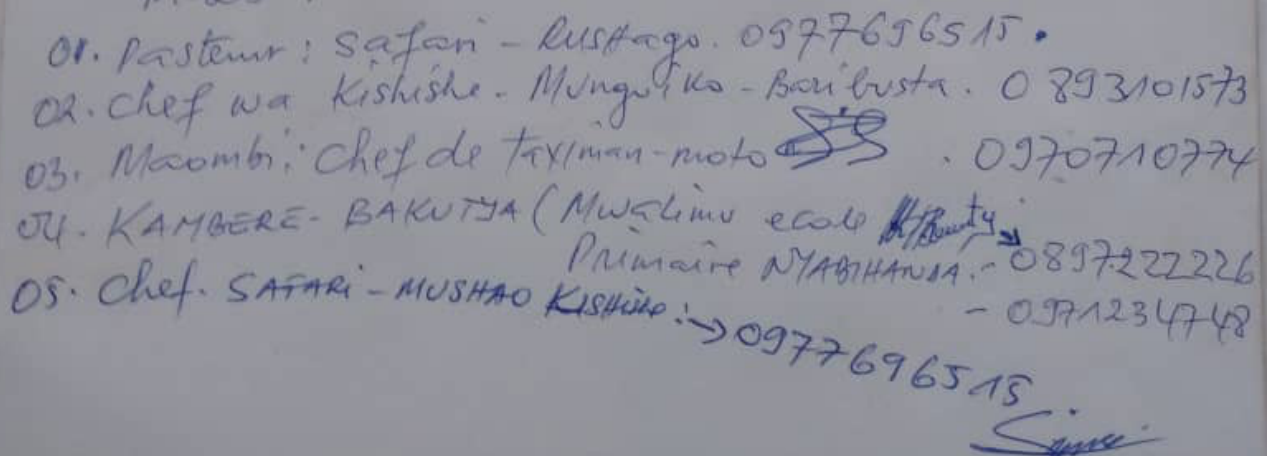 01. Pasteur : Safari - Rushago. 0977696515.
02. Chef wa Kishishe - Munguiko - Baribusta. 0893101573
03. Maombi : Chef de taximan-moto . 0970710774
04. KAMBERE - BAKUTJA ( Mwalimu ecole
Primaire NYABIHANGA. - 0897222226
- 0971234748
05. Chef. SAFARI - MUSHAO KISHishe : → 0977696515